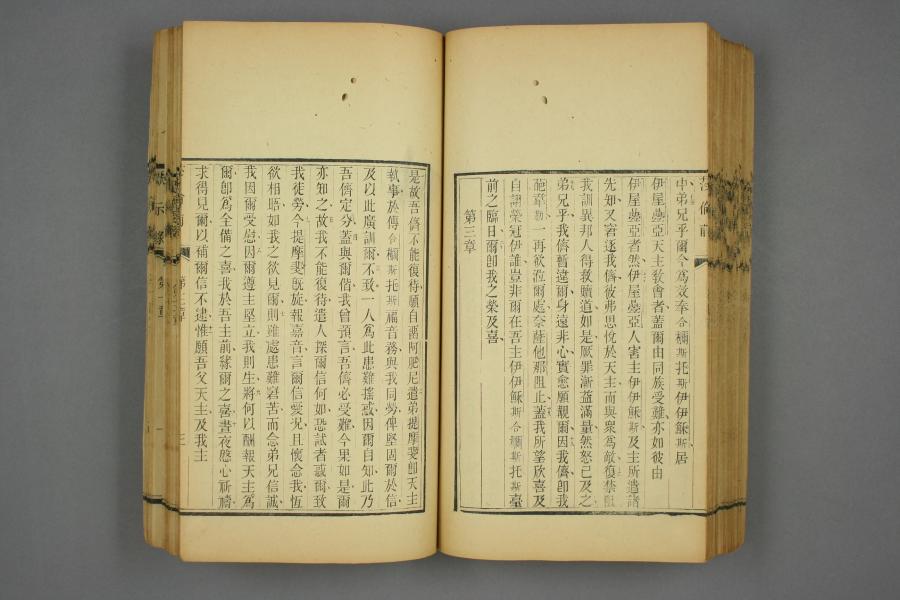 中弟兄乎爾今爲效奉合䙿斯托斯伊伊穌斯居
伊屋疊亞天主敎會者蓋爾由同族受難亦如彼由
伊屋疊亞者然伊屋疊亞人害主伊伊穌斯及主所遣諸
先知又窘逐我儕彼弗思悅於天主而與衆爲敵復禁阻
我訓異邦人得救贖道如是厥罪漸益滿量然怒已及之
弟兄乎我儕暫違爾身遠非心實愈願覩爾因我儕卽我
葩韋勒一再欲涖爾處奈薩他那阻止蓋我所望欣喜及
自詡榮冠伊誰豈非爾在吾主伊伊穌斯合䙿斯托斯臺
前之臨日爾卽我之榮及喜
第三章
是故吾儕不能復待願自畱阿肥尼遣弟提摩斐卽天主
執事於傳合䙿斯托斯福音務與我同勞俾堅固爾於信
及以此廣訓爾不致一人爲此患難搖惑因爾自知此乃
吾儕定分蓋與爾偕我曾預言吾儕必受難今果如是爾
亦知之故我不能復待遣人探爾信何如恐試者惑爾致
我徒勞今提摩斐旣旋報嘉音言爾信愛況且懷念我恆
欲相晤如我之欲見爾則雖處患難窘苦而念弟兄信誠
我因爾受慰因爾遵主堅立我則生將何以酬報天主爲
爾卽爲全備之喜我於吾主前緣爾之喜晝夜慇心祈禱
求得見爾以補爾信不逮惟願吾父天主及我主